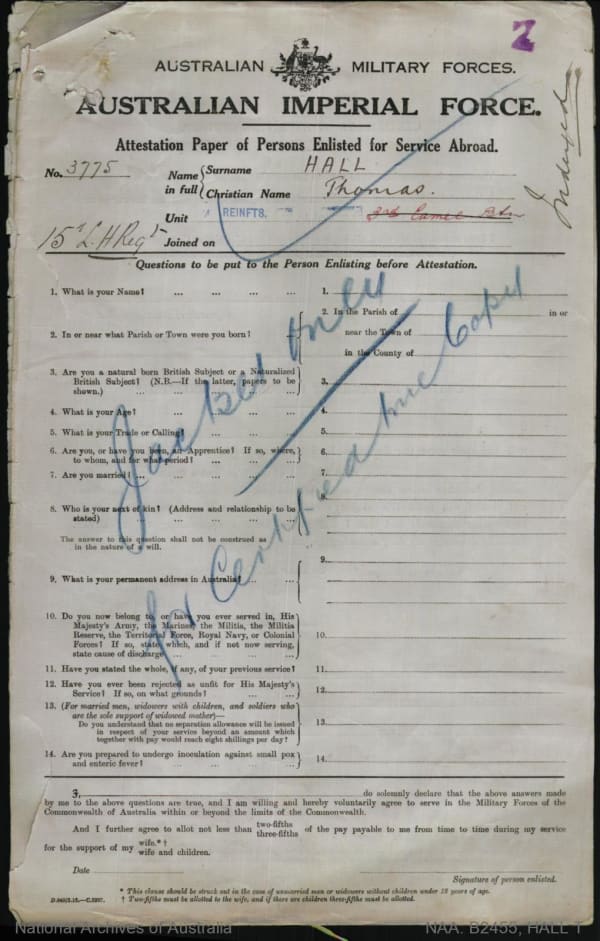 Z
AUSTRALIAN MILITARY FORCES.
AUSTRALIAN IMPERIAL FORCE.
Indexed
Attestation Paper of Persons Enlisted for Service Abroad.
No. 3775 Name in full Surname HALL
Christian Name Thomas.
Unit REINFTS. 3rd Camel Btn
15th L.H Regt Joined on
Questions to be put to the Person Enlisting before Attestation.
1. What is your Name? ... ... ... ... 1.
2. In or near what Parish or Town were you born? ... 2. In the Parish of in or
near the Town of
in the County of
3. Are you a natural born British Subject or a Naturalized
British Subject? (N.B.—If the latter, papers to be
shown.) ... ... ... ... 3.
4. What is your Age? ... ... ... ... 4.
5. What is your Trade or Calling? ... ... ... 5.
6. Are you, or have you been, an Apprentice? If so, where,
to whom, and for what period? ... ... ... 6.
7. Are you married? ... ... ... ... 7.
8. Who is your next of kin? (Address and relationship to be
stated) ... ... ... ... 8.
The answer to this question shall not be construed as
in the nature of a will.
9. What is your permanent address in Australia? ... ... 9.
10. Do you now belong to, or have you ever served in, His
Majesty's Army, the Marines, the Militia, the Militia
Reserve, the Territorial Force, Royal Navy, or Colonial
Forces? If so, state which, and if not now serving,
state cause of discharge ... ... ... 10.
11. Have you stated the whole, if any, of your previous service? 11.
12. Have you ever been rejected as unfit for His Majesty's
Service? If so, on what grounds? ... ... 12.
13. (For married men, widowers with children, and soldiers who
are the sole support of widowed mother)—
Do you understand that no separation allowance will be issued
in respect of your service beyond an amount which
together with pay would reach eight shillings per day? 13.
14. Are you prepared to undergo inoculation against small pox
and enteric fever? ... ... ... ... 14.
Jacket only
for Certified true Copy
I, do solemnly declare that the above answers made
by me to the above questions are true, and I am willing and hereby voluntarily agree to serve in the Military Forces of the
Commonwealth of Australia within or beyond the limits of the Commonwealth.
And I further agree to allot not less than two-fifths three-fifths of the pay payable to me from time to time during my service
for the support of my wife.*† wife and children.
Date
Signature of person enlisted.
* This clause should be struck out in the case of unmarried men or widowers without children under 18 years of age.
† Two-fifths must be allotted to the wife, and if there are children three-fifths must be allotted.
National Archives of Australia NAA: B2455, HALL T